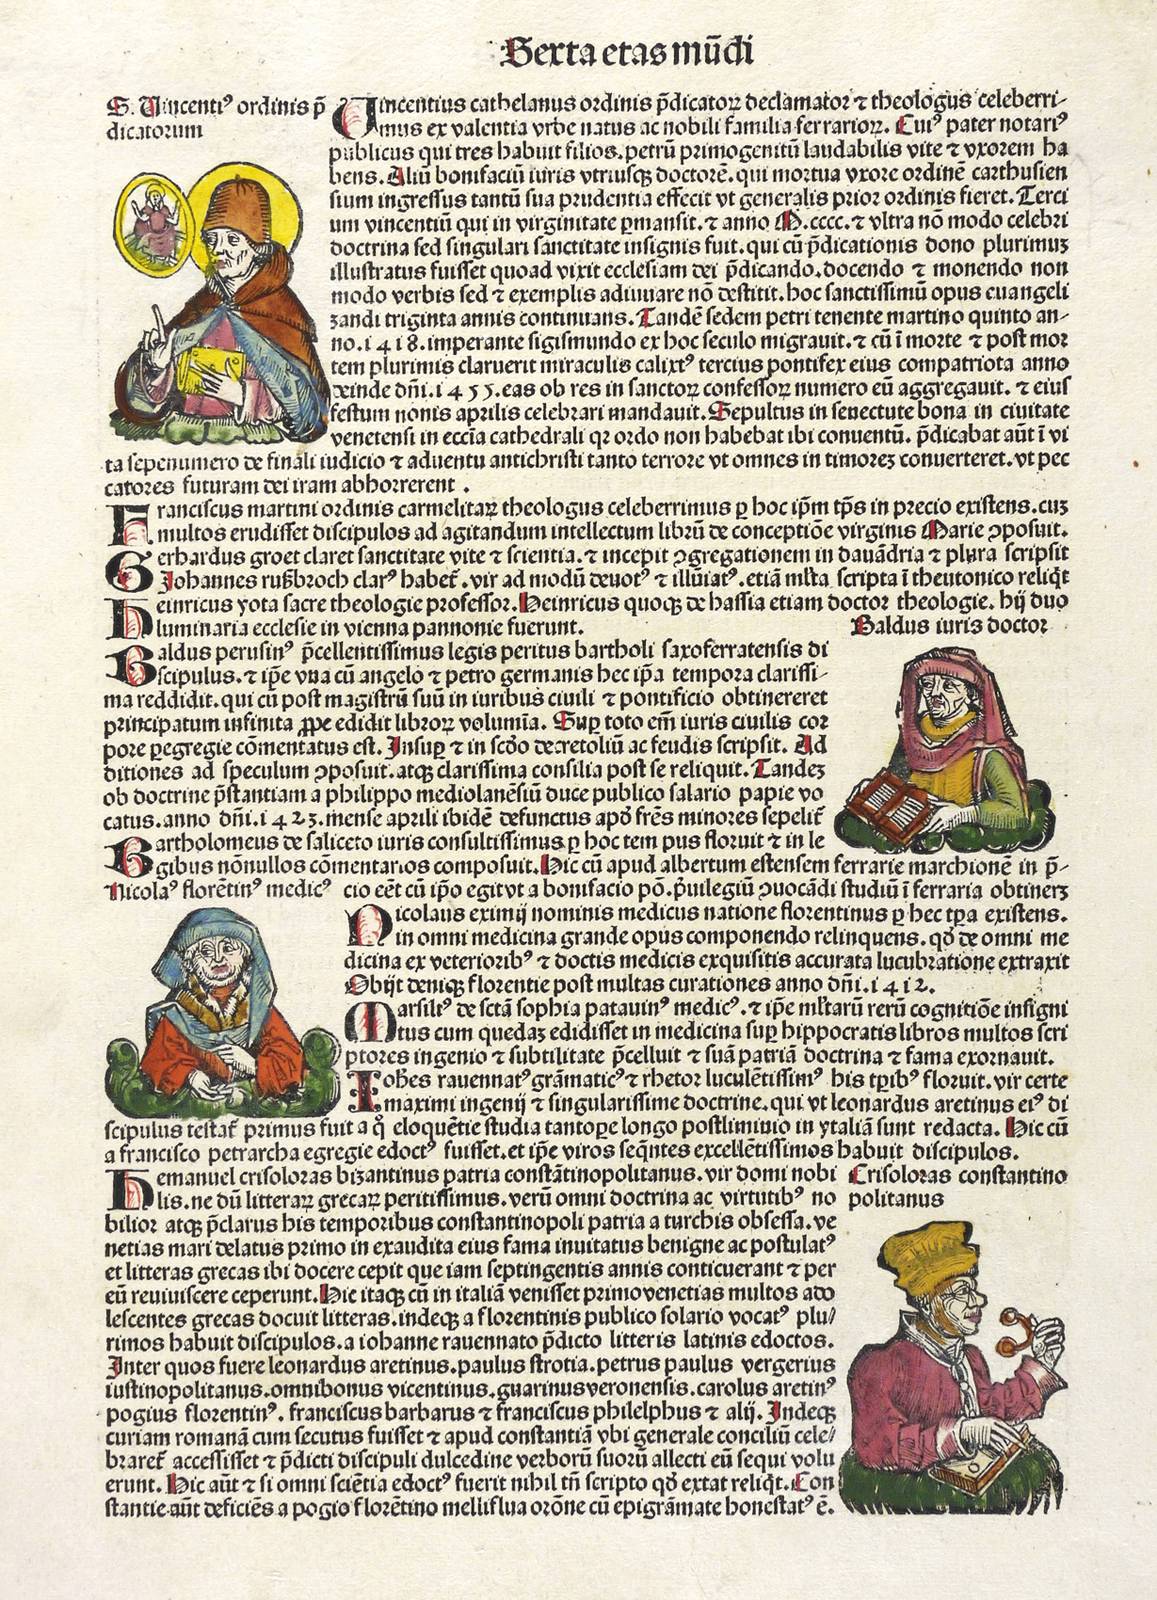 Sexta etas mūdi
S. Vincentiꝰ ordinis p̄
dicatorum
Vincentius cathelanus ordinis p̄dicatoꝝ declamator ⁊ theologus celeberri-
mus ex valentia vrbe natus ac nobili familia ferrarioꝝ. Cuiꝰ pater notariꝰ
publicus qui tres habuit filios. petrū primogenitū laudabilis vite ⁊ vxorem ha
bens. Aliū bonifaciū iuris vtriusqꝫ doctorē. qui mortua vxore ordinē carthusien
sium ingressus tantū sua prudentia effecit vt generalis prior ordinis fieret. Terci
um vincentiū qui in virginitate ꝑmansit. ⁊ anno M.cccc. ⁊ vltra nō modo celebri
doctrina sed singulari sanctitate insignis fuit. qui cū p̄dicationis dono plurimuꝫ
illustratus fuisset quoad vixit ecclesiam dei p̄dicando. docendo ⁊ monendo non
modo verbis sed ⁊ exemplis adiuuare nō destitit. hoc sanctissimū opus euangeli
zandi triginta annis continuans. Tandē sedem petri tenente martino quinto an-
no.1418. imperante sigismundo ex hoc seculo migrauit. ⁊ cū ī morte ⁊ post mor
tem plurimis claruerit miraculis calixtꝰ tercius pontifex eius compatriota anno
deinde dn̄i.1455. eas ob res in sanctoꝝ confessoꝝ numero eū aggregauit. ⁊ eius
festum nonis aprilis celebrari mandauit. Sepultus in senectute bona in ciuitate
venetensi in eccīa cathedrali qꝛ ordo non habebat ibi conuentū. p̄dicabat aūt ī vi
ta sepenumero de finali iudicio ⁊ aduentu antichristi tanto terrore vt omnes in timoreꝫ conuerteret. vt pec
catores futuram dei iram abhorrerent .
Franciscus martini ordinis carmelitaꝝ theologus celeberrimus ꝑ hoc ip̄m tp̄s in precio existens. cuꝫ
multos erudisset discipulos ad agitandum intellectum librū de conceptiōe virginis Marie ꝯposuit.
Gerhardus groet claret sanctitate vite ⁊ scientia. ⁊ incepit ꝯgregationem in dauādria ⁊ plura scripsit
Johannes rußbroch clarꝰ habet̄. vir ad modū deuotꝰ ⁊ illūiatꝰ. etiā ml̄ta scripta ī theutonico reliq̄t
Heinricus yota sacre theologie professor. Heinricus quoqꝫ de hassia etiam doctor theologie. hij duo
luminaria ecclesie in vienna pannonie fuerunt.
Baldus iuris doctor
Baldus perusinꝰ p̄cellentissimus legis peritus bartholi saxoferratensis di
scipulus. ⁊ ip̄e vna cū angelo ⁊ petro germanis hec ip̄a tempora clarissi-
ma reddidit. qui cū post magistrū suū in iuribus ciuili ⁊ pontificio obtinereret
principatum infinita ꝓpe edidit libroꝝ volumīa. Suꝑ toto em̄ iuris ciuilis cor
pore ꝑegregie cōmentatus est. Insuꝑ ⁊ in scd̄o decretoliū ac feudis scripsit. Ad
ditiones ad speculum ꝯposuit. atqꝫ clarissima consilia post se reliquit. Tandeꝫ
ob doctrine p̄stantiam a philippo mediolanēsiū duce publico salario papie vo
catus. anno dn̄i.1423. mense aprili ibidē defunctus apd̄ fr̄es minores sepelit̄
Bartholomeus de saliceto iuris consultissimus ꝑ hoc tem pus floruit ⁊ in le
gibus nōnullos cōmentarios composuit. Hic cū apud albertum estensem ferrarie marchionē in p̄-
cio eēt cū ip̄o egit vt a bonifacio pō. p̄uilegiū ꝯuocādi studiū ī ferraria obtinerꝫ
Nicolaꝰ florētinꝰ medicꝰ
Nicolaus eximij nominis medicus natione florentinus ꝑ hec tp̄a existens.
in omni medicina grande opus componendo relinquens. qd̄ de omni me
dicina ex veterioribꝰ ⁊ doctis medicis exquisitis accurata lucubratione extraxit
Obijt deniqꝫ florentie post multas curationes anno dn̄i.1412.
Marsiliꝰ de sctā sophia patauinꝰ medicꝰ. ⁊ ip̄e ml̄tarū rerū cognitiōe insigni
tus cum quedaꝫ edidisset in medicina suꝑ hippocratis libros multos scri
ptores ingenio ⁊ subtilitate p̄celluit ⁊ suā patriā doctrina ⁊ fama exornauit.
Iohēs rauennatꝰ grāmaticꝰ ⁊ rhetor luculētissimꝰ his tp̄ibꝰ floruit. vir certe
maximi ingenij ⁊ singularissime doctrine. qui vt leonardus aretinus eiꝰ di
scipulus testat̄ primus fuit a q̊ eloquētie studia tantopere longo postliminio in ytaliā sunt redacta. Hic cū
a francisco petrarcha egregie edoctꝰ fuisset. et ip̄e viros seq̄ntes excellētissimos habuit discipulos.
Hemanuel crisoloras bizantinus patria constātinopolitanus. vir domi nobi
lis. ne dū litteraꝝ grecaꝝ peritissimus. verū omni doctrina ac virtutibꝰ no
bilior atqꝫ p̄clarus his temporibus constantinopoli patria a turchis obsessa. ve
netias mari delatus primo in exaudita eius fama inuitatus benigne ac postulatꝰ
et litteras grecas ibi docere cepit que iam septingentis annis conticuerant ⁊ per
eū reuiuiscere ceperunt. Hic itaqꝫ cū in italiā venisset primo venetias multos ado
lescentes grecas docuit litteras. indeqꝫ a florentinis publico solario vocatꝰ plu/
rimos habuit discipulos. a iohanne rauennato p̄dicto litteris latinis edoctos.
Inter quos fuere leonardus aretinus. paulus strotia. petrus paulus vergerius
iustinopolitanus. omnibonus vicentinus. guarinus veronensis. carolus aretinꝰ
pogius florentinꝰ. franciscus barbarus ⁊ franciscus philelphus ⁊ alij. Indeqꝫ
curiam romanā cum secutus fuisset ⁊ apud constantiā vbi generale conciliū cele/
braret̄ accessisset ⁊ p̄dicti discipuli dulcedine verborū suorū allecti eū sequi volu
erunt. Hic aūt ⁊ si omni sciētia edoctꝰ fuerit nihil tn̄ scripto qd̄ extat reliq̄t. Con
stantie aūt deficiēs a pogio florētino melliflua orōne cū epigrāmate honestatꝰ ē.
Crisoloras constantino
politanus